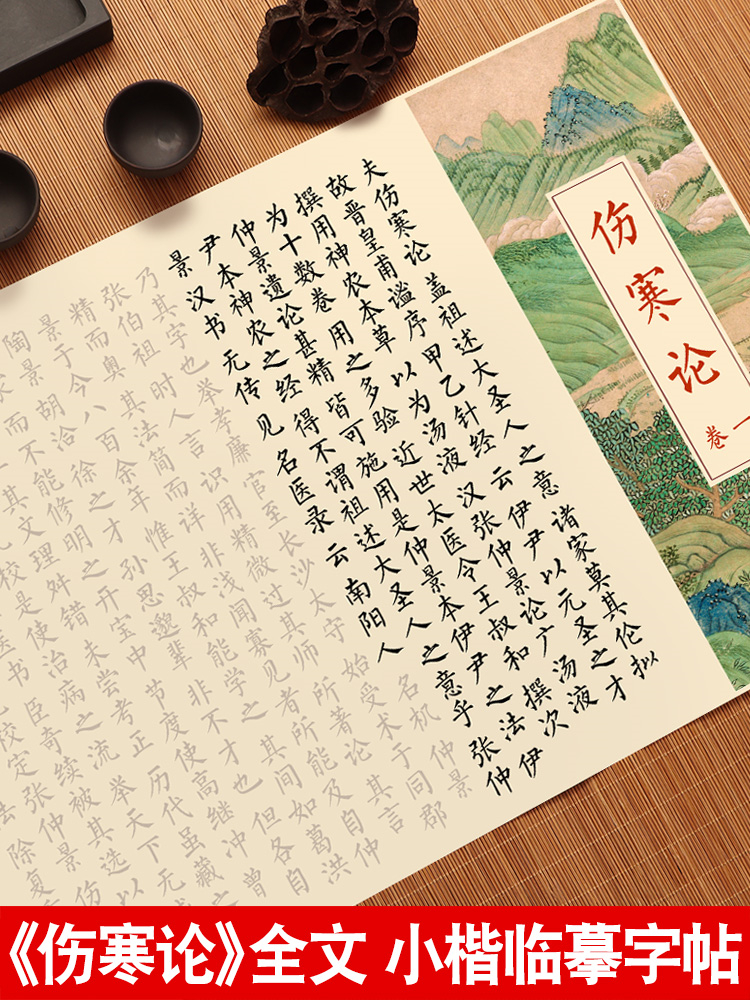 伤寒论
卷一
夫伤寒论盖祖述大圣人之意诸家莫其伦拟
故晋皇甫谧序甲乙针经云伊尹以元圣之才
撰用神农本草以为汤液汉张仲景论广汤液
为十数卷用之多验近世太医令王叔和撰次
仲景遗论甚精皆可施用是仲景本伊尹之法伊
尹本神农之经得不谓祖述大圣人之意乎张仲
景汉书无传见名医录云南阳人名机仲景
乃其字也举孝廉官至长沙太守始受术于同郡
张伯祖时人言识用精微过其师所著论其言
精而奥其法简而详非浅闻寡见者所能及自仲
景于今八百余年惟王叔和能学之其间如葛洪
陶景胡洽徐之才孙思邈辈非不才也但各自
而不能修明之开宝中节度使高继冲曾
其文理舛错未尝考正历代虽藏之
校是使治病之流举天下无
书臣奇续被其选以
校定张仲景伤
《伤寒论》全文 小楷临摹字帖